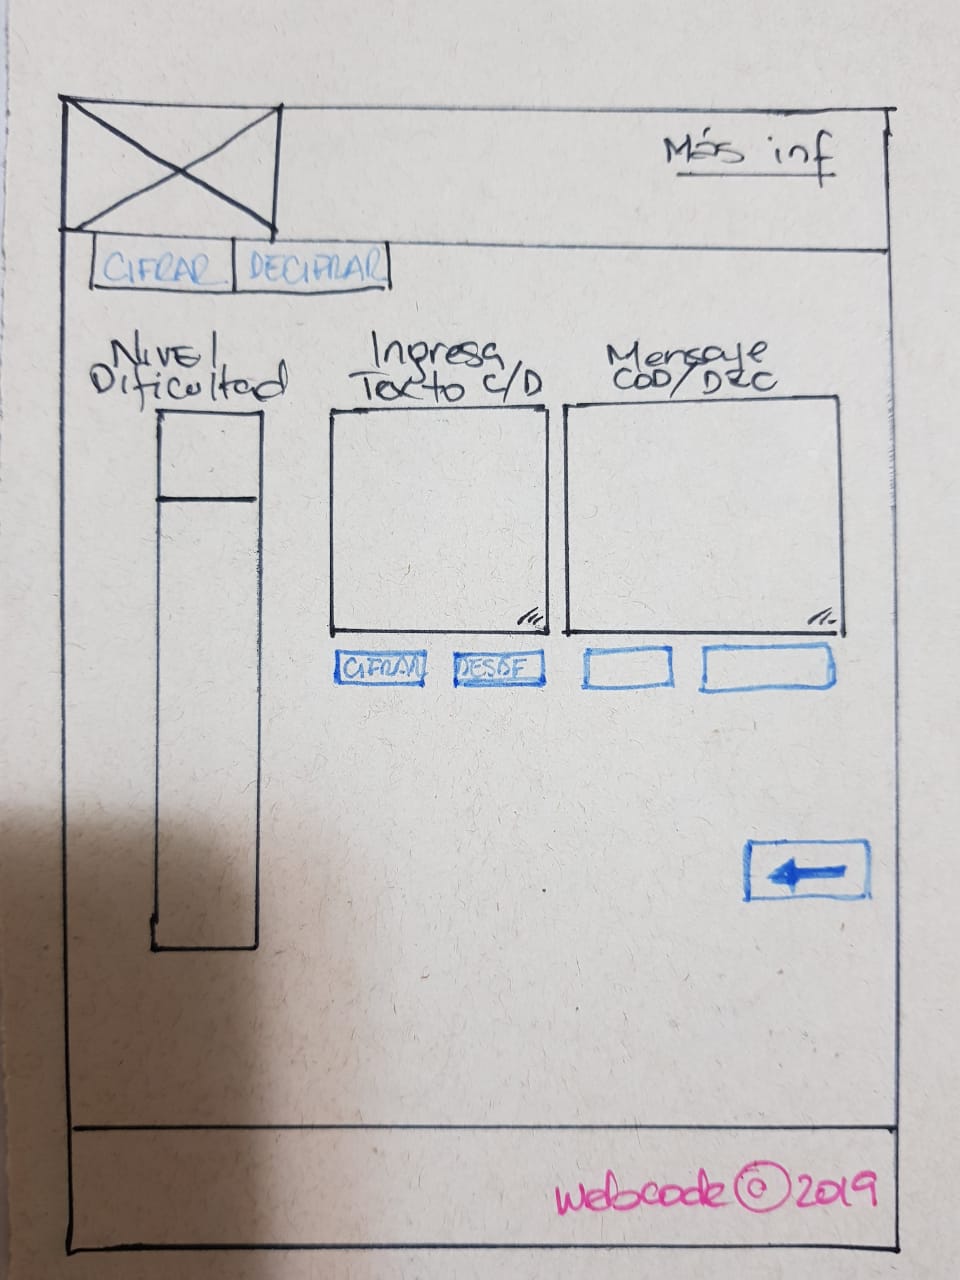 Más inf
CIFRAR DECIFRAR
Nivel
Dificultad
Ingresa
Texto C/D
Mensaje
COD/DEC
CIFRAR DESDF
webcode © 2019